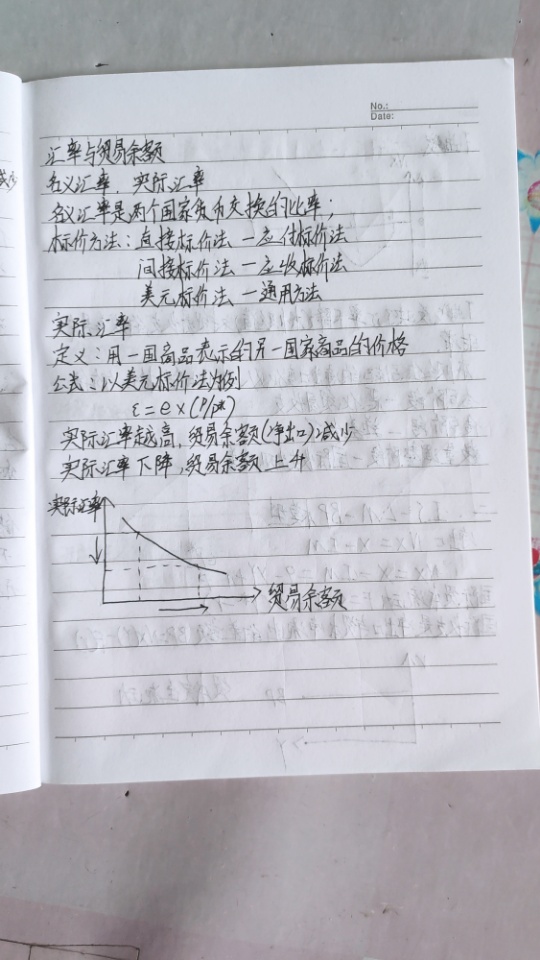 No.:
Date:
减少
汇率与贸易余额
名义汇率，实际汇率
名义汇率是两个国家货币交换的比率；
标价方法：直接标价法 — 应付标价法
间接标价法 — 应收标价法
美元标价法 — 通用方法
实际汇率
定义：用一国商品表示的另一国家商品的价格
公式：以美元标价法为例
ε = e × (P/P*)
实际汇率越高，贸易余额(净出口)减少
实际汇率下降，贸易余额上升
实际汇率
贸易余额